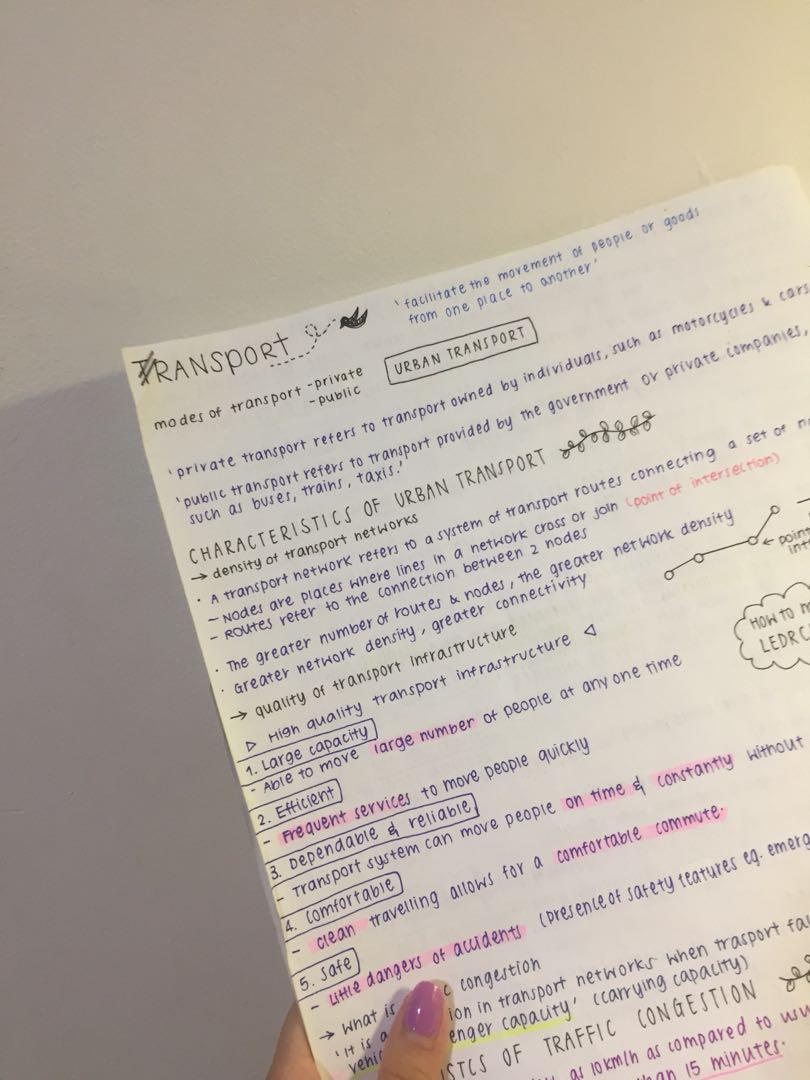 TRANSPORT
'facilitate the movement of people or goods
from one place to another'
modes of transport - private
- public
URBAN TRANSPORT
'private transport refers to transport owned by individuals, such as motorcycles & cars
'public transport refers to transport provided by the government or private companies,
such as buses, trains, taxis.'
CHARACTERISTICS OF URBAN TRANSPORT
→ density of transport networks
· A transport network refers to a system of transport routes connecting a set of
- Nodes are places where lines in a network cross or join (point of intersection)
- Routes refer to the connection between 2 nodes
· The greater number of routes & nodes, the greater network density
· Greater network density, greater connectivity
← poin
int
HOW TO M
LEDRC
→ quality of transport infrastructure
▷ High quality transport infrastructure ◁
1. Large capacity
- Able to move large number of people at any one time
2. Efficient
- Frequent services to move people quickly
3. Dependable & reliable
- Transport system can move people on time & constantly without
4. Comfortable
- clean travelling allows for a comfortable commute.
5. Safe
- Little dangers of accidents (presence of safety features eg. emerg
→ What is c congestion
'It is a ion in transport networks when trasport fa
vehic enger capacity' (carrying capacity)
ISTCS OF TRAFFIC CONGESTION
as 10km/h as compared to usu
han 15 minutes.